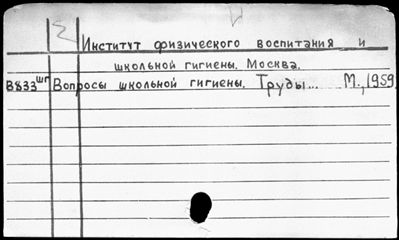 Институт физического воспитания и
школьной гигиены. Москва.
В833шг Вопросы школьной гигиены. Труды... М., 1959